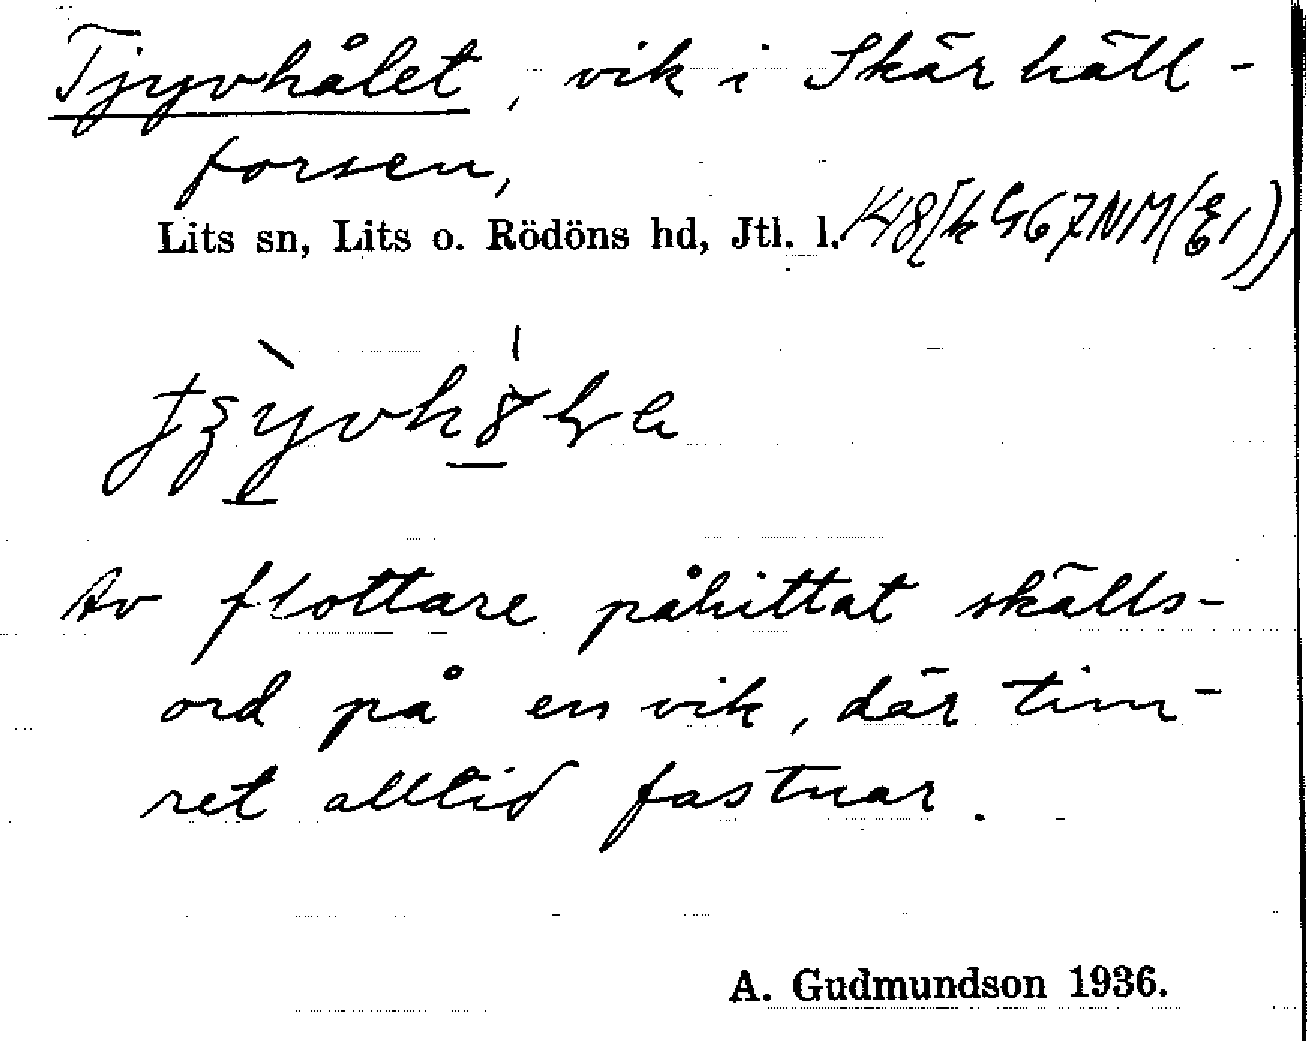 Tjyvhålet, vik i Skärhäll-
forsen,
Lits sn, Lits o. Rödöns hd, Jtl. l.
Av flottare påhittat skälls-
ord på en vik, där tim-
ret alltid fastnar.
A. Gudmundson 1936.